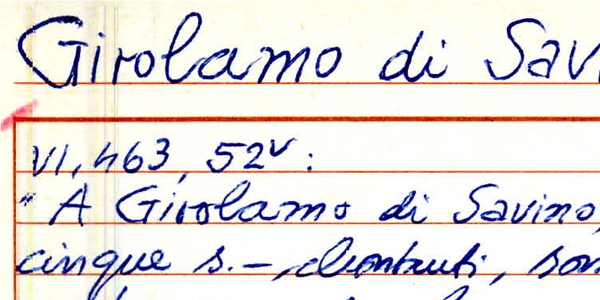 Girolamo di Sav
VI, 463, 52v:
"A Girolamo di Savino,
cinque s.–, chontanti, son